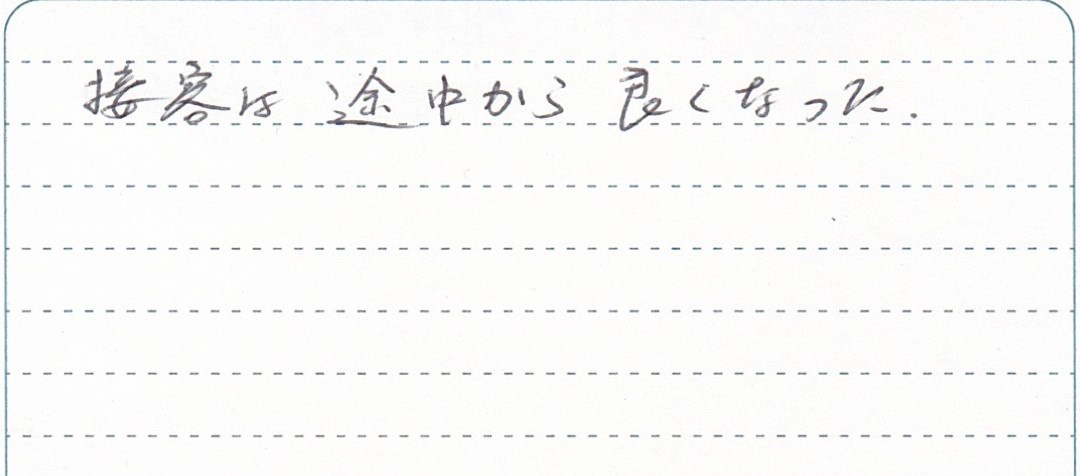 接客は途中から良くなった.